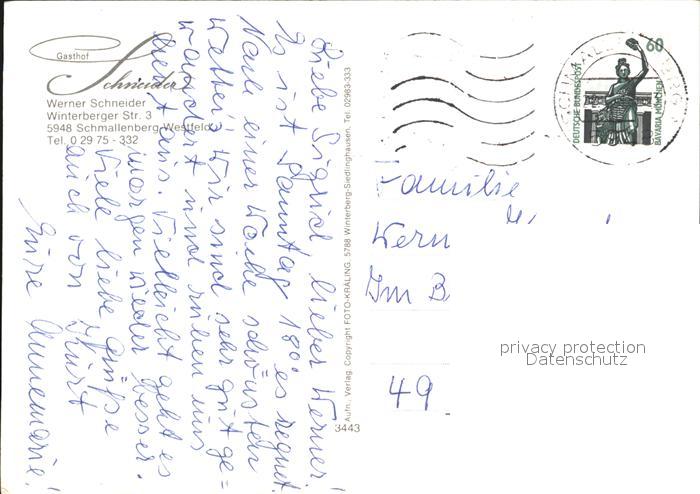 Gasthof
Schneider
Werner Schneider
Winterberger Str. 3
5948 Schmallenberg-Westfeld
Tel. 0 29 75 - 332
Liebe Sigrid, lieber Werner!
Es ist Sonntag 18°° es regnet.
Nach einer Woche schönsten
Wetters. Wir sind sehr gut ge=
wandert und ruhen uns
heut aus. Vielleicht geht es
morgen wieder besser.
Viele liebe Grüße
auch von Kurt
Eure Annemarie!
Aufn., Verlag, Copyright FOTO-KRÄLING, 5788 Winterberg-Siedlinghausen, Tel. 02983-333
3443
60
DEUTSCHE BUNDESPOST
BAVARIA MÜNCHEN
Familie
Wern
Im B
49
privacy protection
Datenschutz